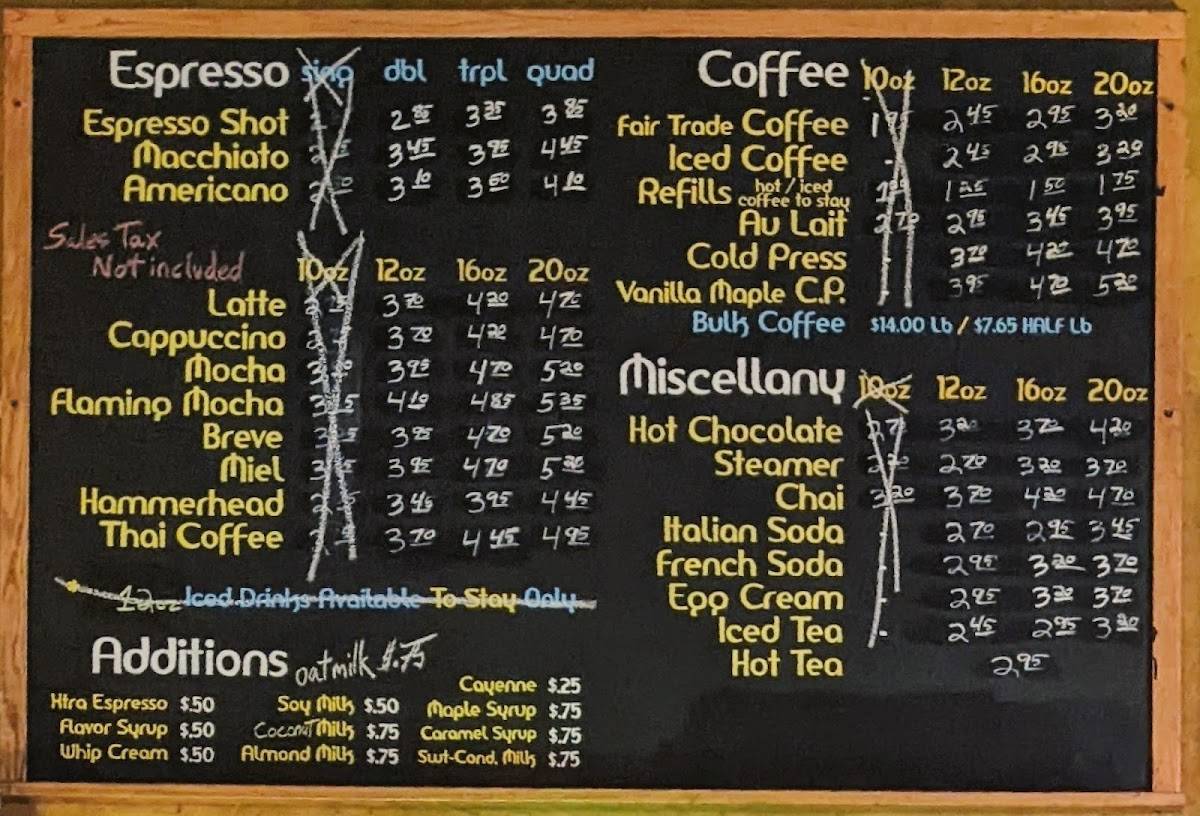 Espresso sing dbl trpl quad
Espresso Shot 2.85 3.35 3.85
Macchiato 3.45 3.95 4.45
Americano 3.10 3.60 4.10
Sales Tax
Not included
10oz 12oz 16oz 20oz
Latte 3.70 4.20 4.70
Cappuccino 3.70 4.20 4.70
Mocha 3.95 4.70 5.20
Flaming Mocha 4.10 4.85 5.35
Breve 3.95 4.70 5.20
Miel 3.95 4.70 5.20
Hammerhead 3.45 3.95 4.45
Thai Coffee 3.70 4.45 4.95
12oz Iced Drinks Available To Stay Only
Additions oatmilk $.75
Xtra Espresso $.50
Flavor Syrup $.50
Whip Cream $.50
Soy Milk $.50
Coconut Milk $.75
Almond Milk $.75
Cayenne $.25
Maple Syrup $.75
Caramel Syrup $.75
Swt-Cond. Milk $.75
Coffee 10oz 12oz 16oz 20oz
Fair Trade Coffee 1.95 2.45 2.95 3.20
Iced Coffee - 2.45 2.95 3.20
Refills hot / iced coffee to stay 1.25 1.50 1.75
Au Lait 2.70 2.95 3.45 3.95
Cold Press 3.70 4.20 4.70
Vanilla Maple C.P. 3.95 4.70 5.20
Bulk Coffee $14.00 Lb / $7.65 HALF Lb
Miscellany 10oz 12oz 16oz 20oz
Hot Chocolate 2.70 3.20 3.70 4.20
Steamer 2.70 3.20 3.70
Chai 3.20 3.70 4.20 4.70
Italian Soda 2.70 2.95 3.45
French Soda 2.95 3.20 3.70
Egg Cream 2.95 3.20 3.70
Iced Tea - 2.45 2.95 3.20
Hot Tea 2.95